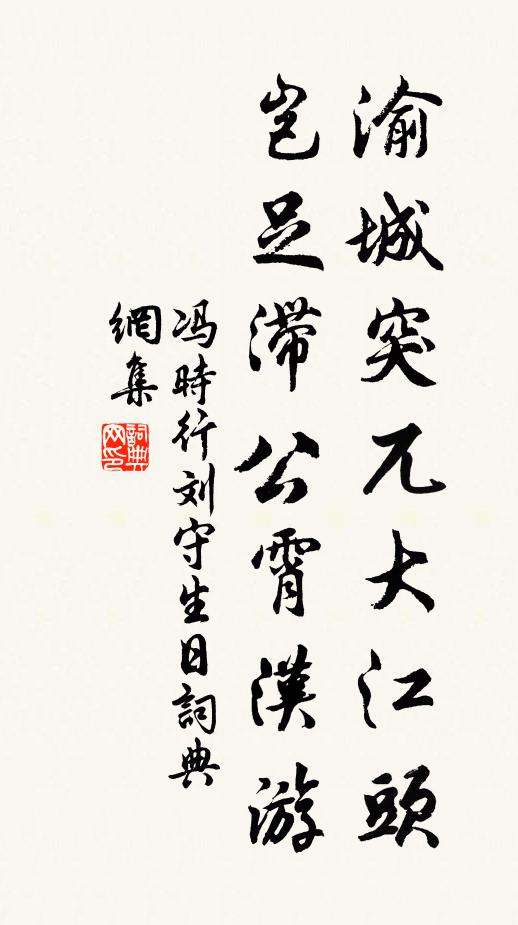 渝城突兀大江頭
岂足滞公霄漢游
冯時行刘守生日詞典
網集
詞典
网印